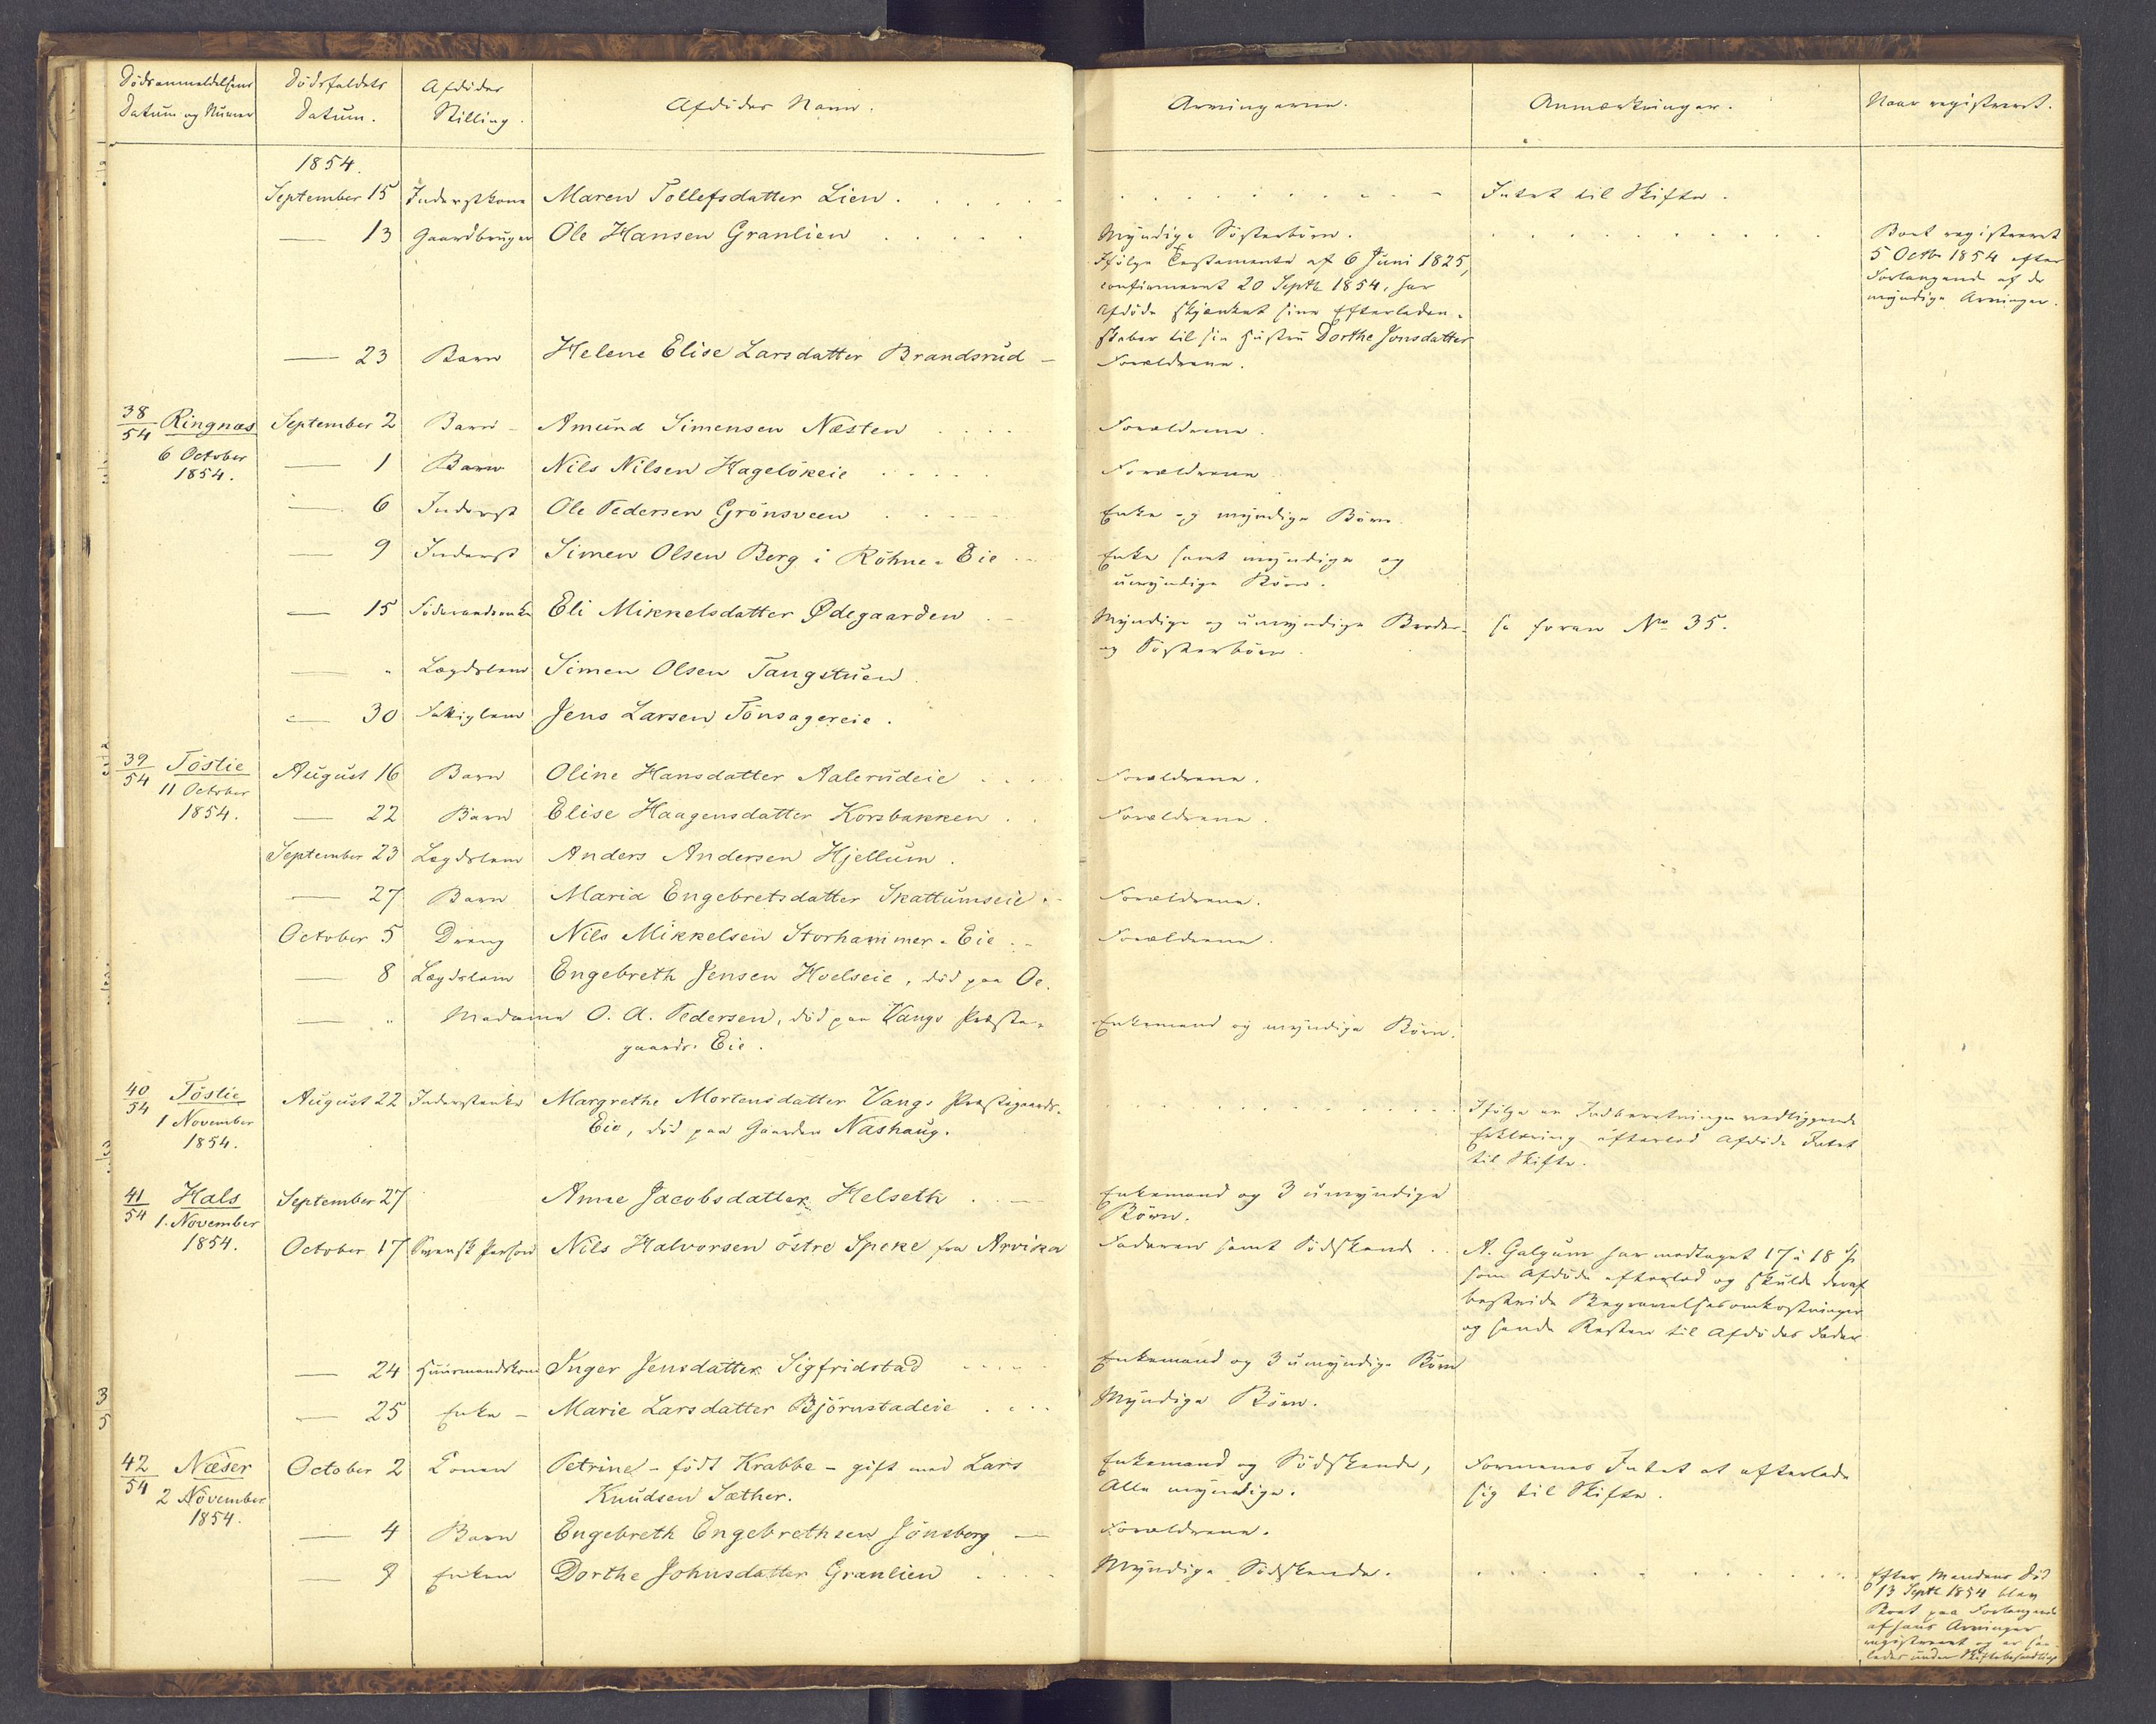 Dödsanmeldelsens Datum og Numer
Dödsfaldets Datum.
Afdödes Stilling.
Afdödes Navn.
Arvingerne.
Anmærkninger.
Naar registreret.
1854.
September 15 Inderstkone Maren Tollefsdatter Lien. Intet til Skifte.
— 13 Gaardbruger Ole Hansen Granlien Myndige Sösterbörn. Boet registreret
Ifölge Testamente af 6 Juni 1825, 5 Octbr 1854 efter
confirmeret 20 Septbr 1854, har Forlangende af de
Afdöde skjænket sine Efterladen- myndige Arvinger.
skaber til sin Hustru Dorthe Jonsdatter
— 23 Barn Helene Elise Larsdatter Brandsrud — Forældrene.
38/54 Ringnæs September 2 Barn - Amund Simensen Næsten Forældrene.
6 October
1854. — 1 Barn Nils Nilsen Hagelökeie Forældrene
— 6 Inderst Ole Pedersen Grönsveen Enke og myndige Börn.
— 9 Inderst Simen Olsen Berg i Röhne-Eie Enke samt myndige og
umyndige Börn.
— 15 Föderaadsenke Eli Mikkelsdatter Ødegaarden Myndige og umyndige Broder- se foran No 35.
og Sösterbörn.
— " Lægdslem Simen Olsen Tangstuen.
— 30 Fattiglem Jens Larsen Tönsagereie.
39/54 Töslie August 16 Barn Oline Hansdatter Aalerudeie Forældrene.
11 October
1854. — 22 Barn Elise Haagensdatter Korsbakken Forældrene.
September 23 Lægdslem Anders Andersen Hjellum.
— 27 Barn Maria Engebretsdatter Skattumseie Forældrene.
October 5 Dreng Nils Mikkelsen Storhammer-Eie Forældrene.
— 8 Lægdslem Engebreth Jensen Hoelseie, död paa Oe.
— " Madame O. A. Pedersen, död paa Vangs Præste- Enkemand og myndige Börn.
gaards-Eie.
40/54 Töslie August 22 Inderstenke Margrethe Mortensdatter Vangs Præstegaards-
1 November Eie, död paa Gaarden Nashaug. Ifölge en Indberetningen vedliggende
1854. Erklæring efterlod Afdöde Intet
til Skifte.
41/54 Hals September 27 Anne Jacobsdatter Helseth Enkemand og 3 umyndige
1. November Börn.
1854. October 17 Svensk Person Nils Halvorsen östre Speke fra Arvika Faderen samt Södskende A. Galgum har modtaget 17 à 18
som Afdöde efterlod og skulde deraf
bestride Begravelsesomkostninger
og sende Resten til Afdödes Fader
— 24 Huusmandskone Inger Jensdatter Sigfridstad Enkemand og 3 umyndige Börn
— 25 Enke - Marie Larsdatter Björnstadeie Myndige Börn.
42/54 Næser October 2 Konen Petrine - födt Krabbe - gift med Lars Enkemand og Södskende, Formenes Intet at efterlade
2 November Knudsen Sæther. Alle myndige. sig til Skifte.
1854. — 4 Barn Engebreth Engebrethsen Jönsberg — Forældrene.
— 9 Enken Dorthe Johnsdatter Granlien Myndige Södskende. Efter Mandens Död
13 Septbr 1854 blev
Boet paa Forlangende
af hans Arvinger
registreret og er saa-
ledes under Skiftebehandling